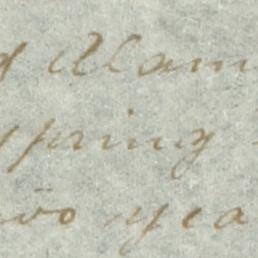 d Alam
spring
two yea